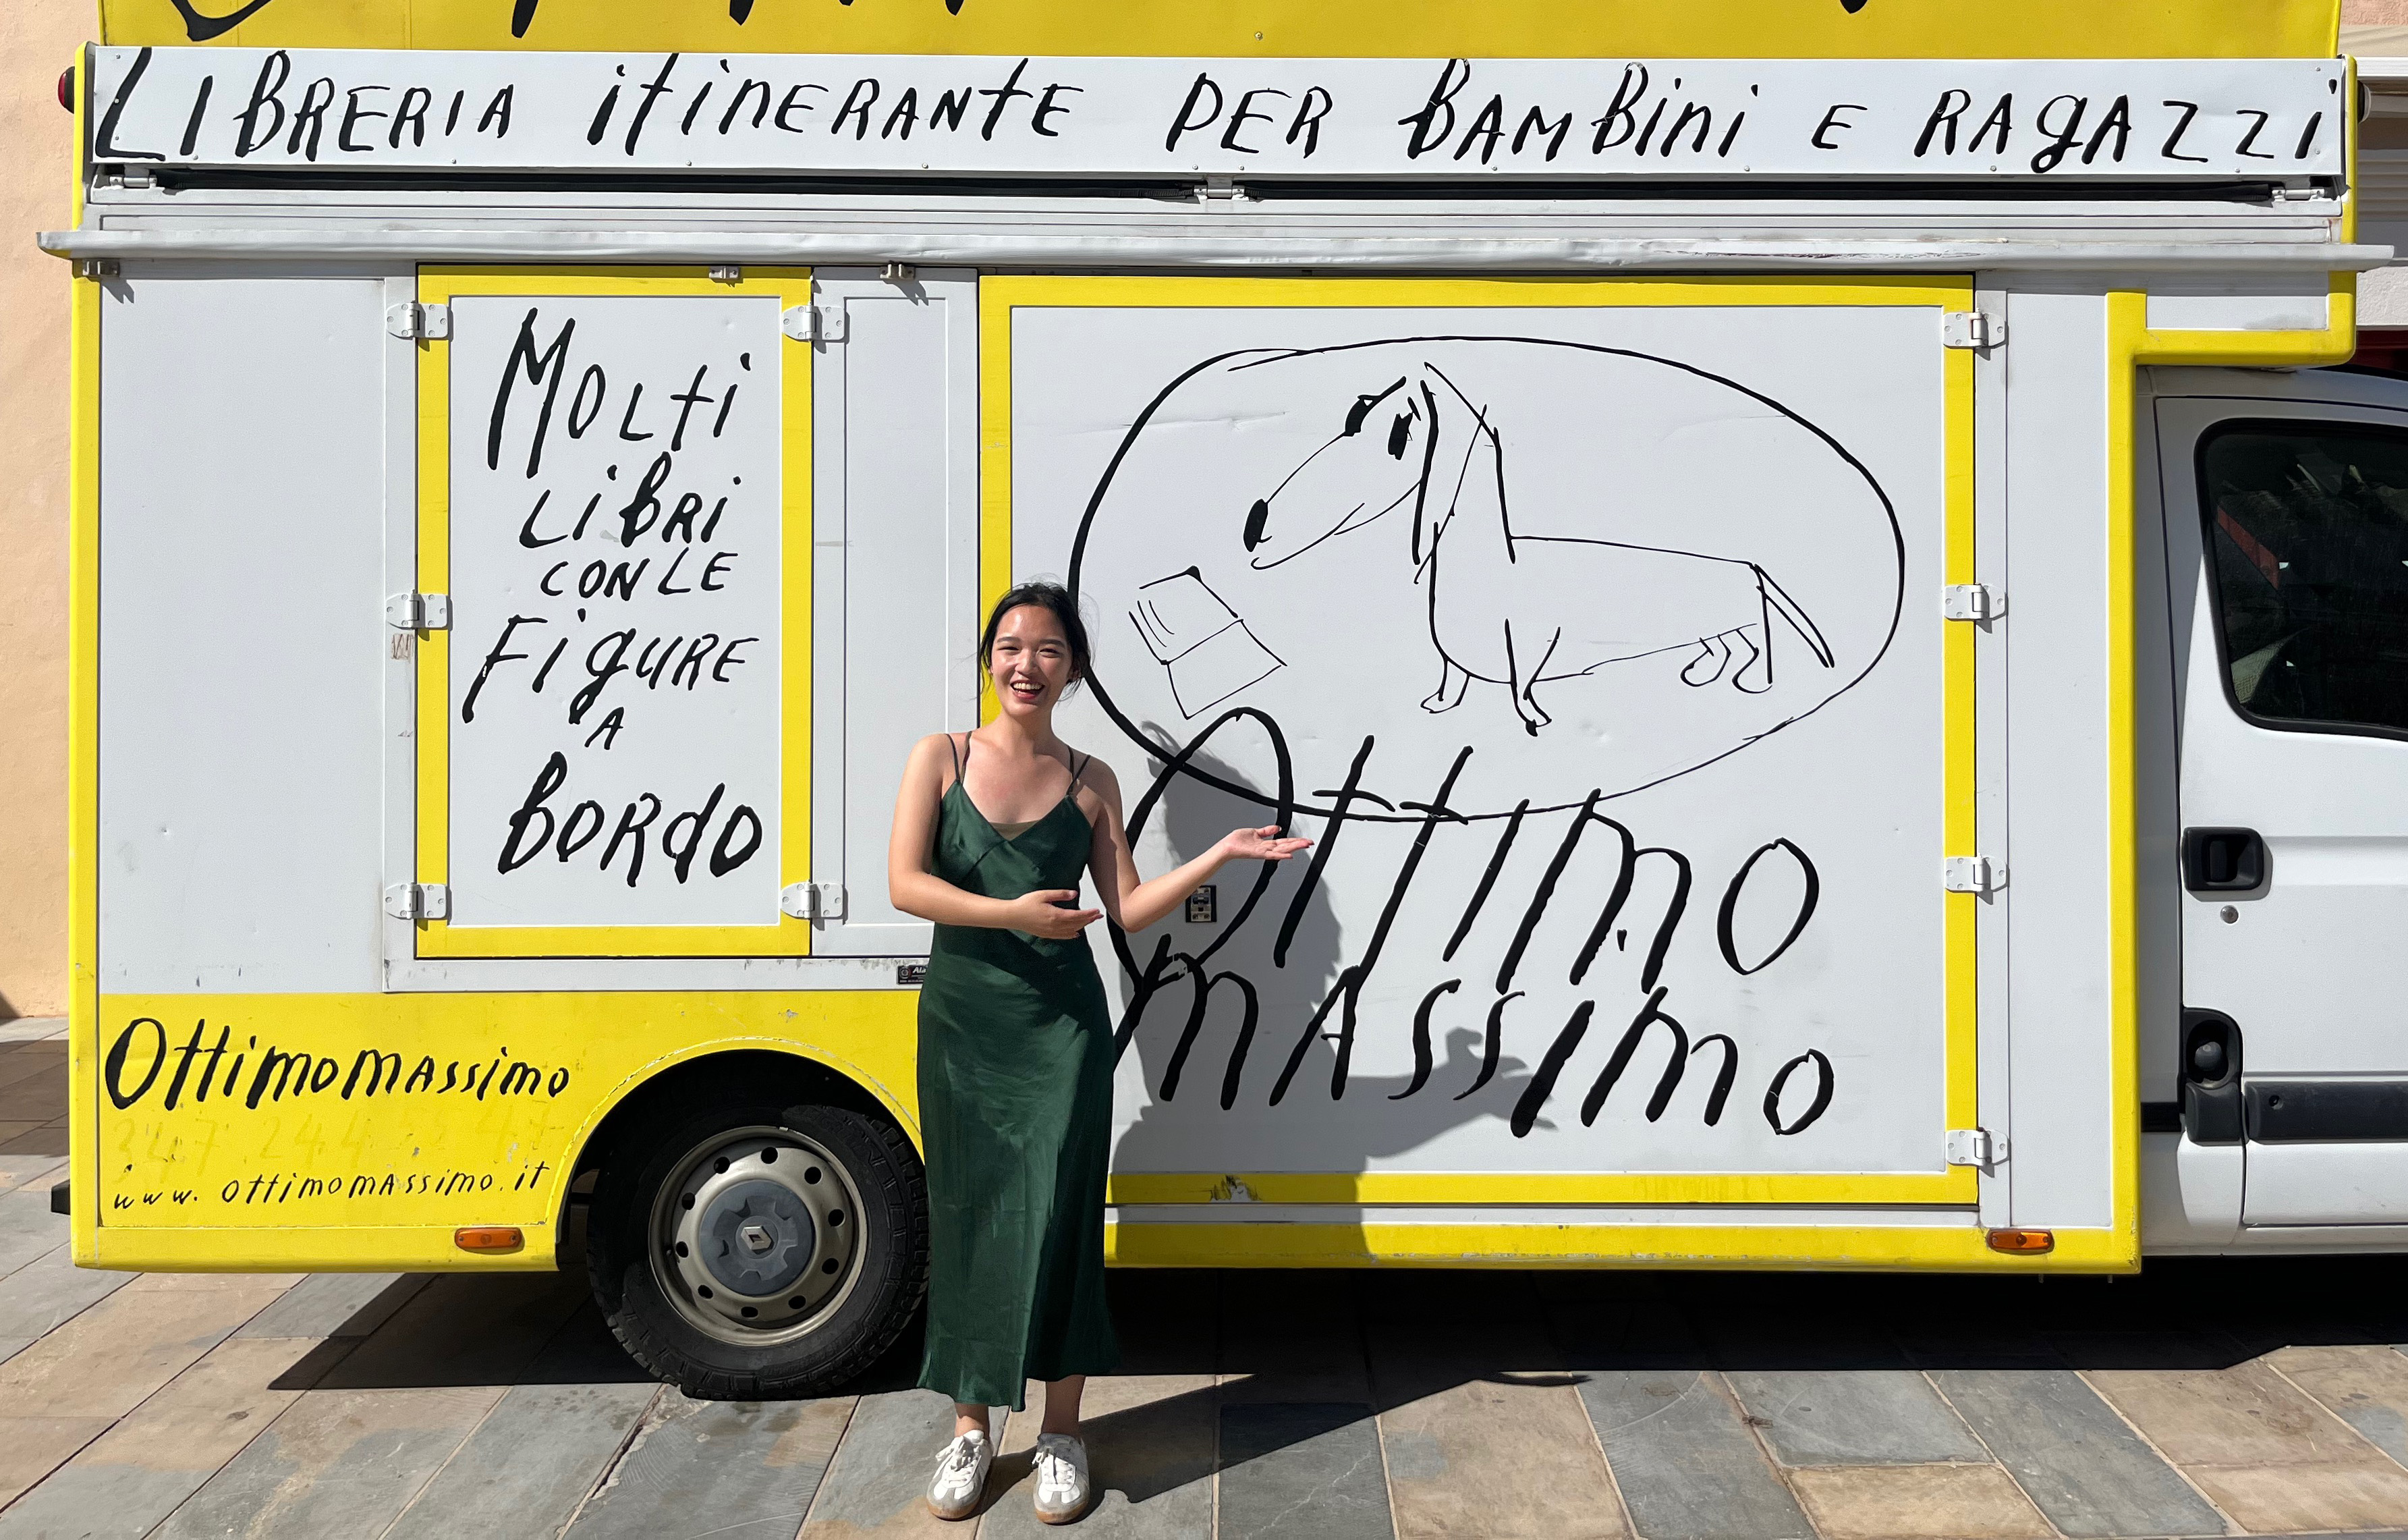 LIBRERIA itiNERANTE PER BAMBiNi E RAGAZZi
MOLti
LiBRI
CON LE
FiguRE
A
BORdO
Ottimo
mASSImo
OttimomAssimo
www.ottimomAssimo.it